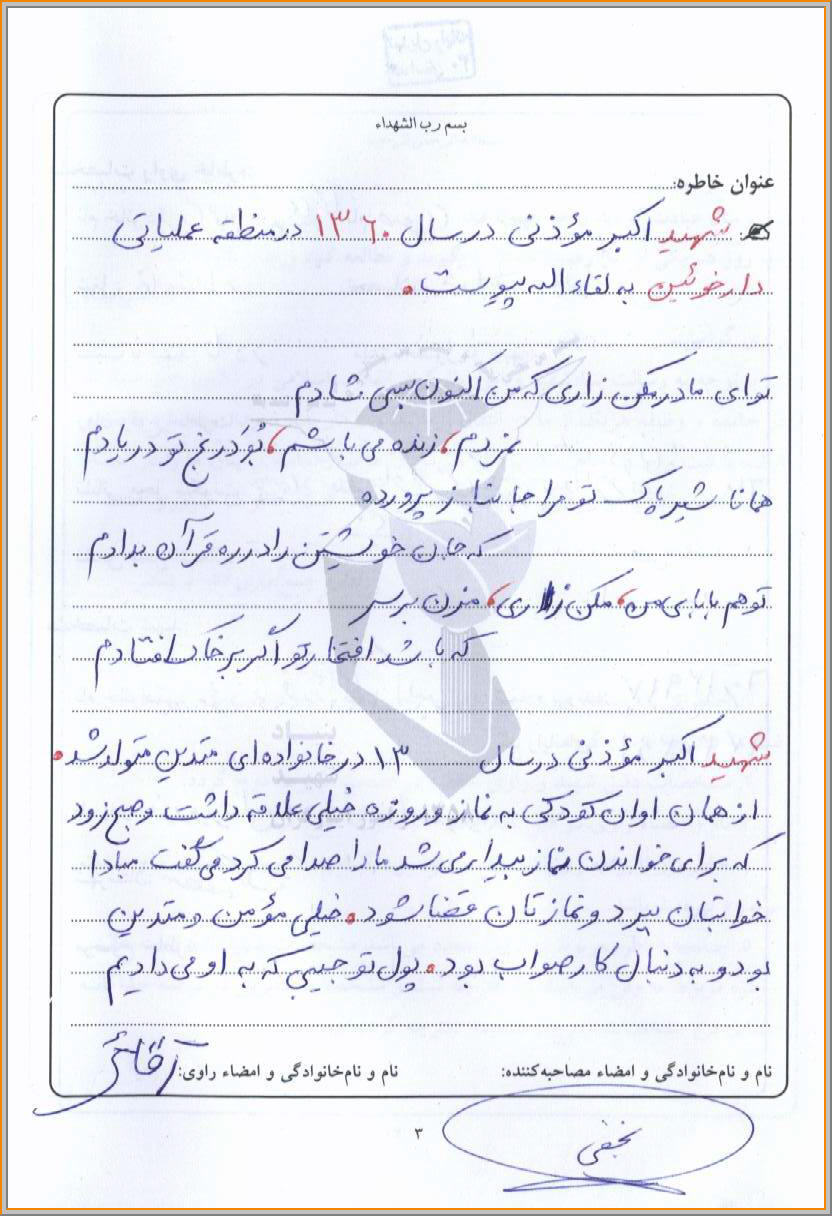 بسم رب الشهداء
عنوان خاطره:
شهید اکبر مؤذنی در سال ۱۳۶۰ در منطقه عملیاتی
دارخوئین به لقاء الله پیوست.
تو ای مادر مکن زاری که من اکنون بسی شادم
نمردم، زنده می باشم، بُوَد رنج تو در یادم
همانا شیر پاک تو مرا جانباز پرورده
که جان خویشتن را در ره قرآن بدادم
تو هم بابای من، مکن زاری، مزن بر سر
که باشد افتخار تو اگر بر خاک افتادم
شهید اکبر مؤذنی در سال ۱۳ در خانواده ای متدین متولد شد.
از همان اوان کودکی به نماز و روزه خیلی علاقه داشت و صبح زود
که برای خواندن نماز بیدار می شد ما را صدا می کرد می گفت مبادا
خوابتان ببرد و نمازتان قضا شود. خیلی مؤمن و متدین
بود و به دنبال کار صواب بود. پول تو جیبی که به او می دادیم
نام و نام‌خانوادگی و امضاء مصاحبه‌کننده: نام و نام‌خانوادگی و امضاء راوی:
نجفی
۳